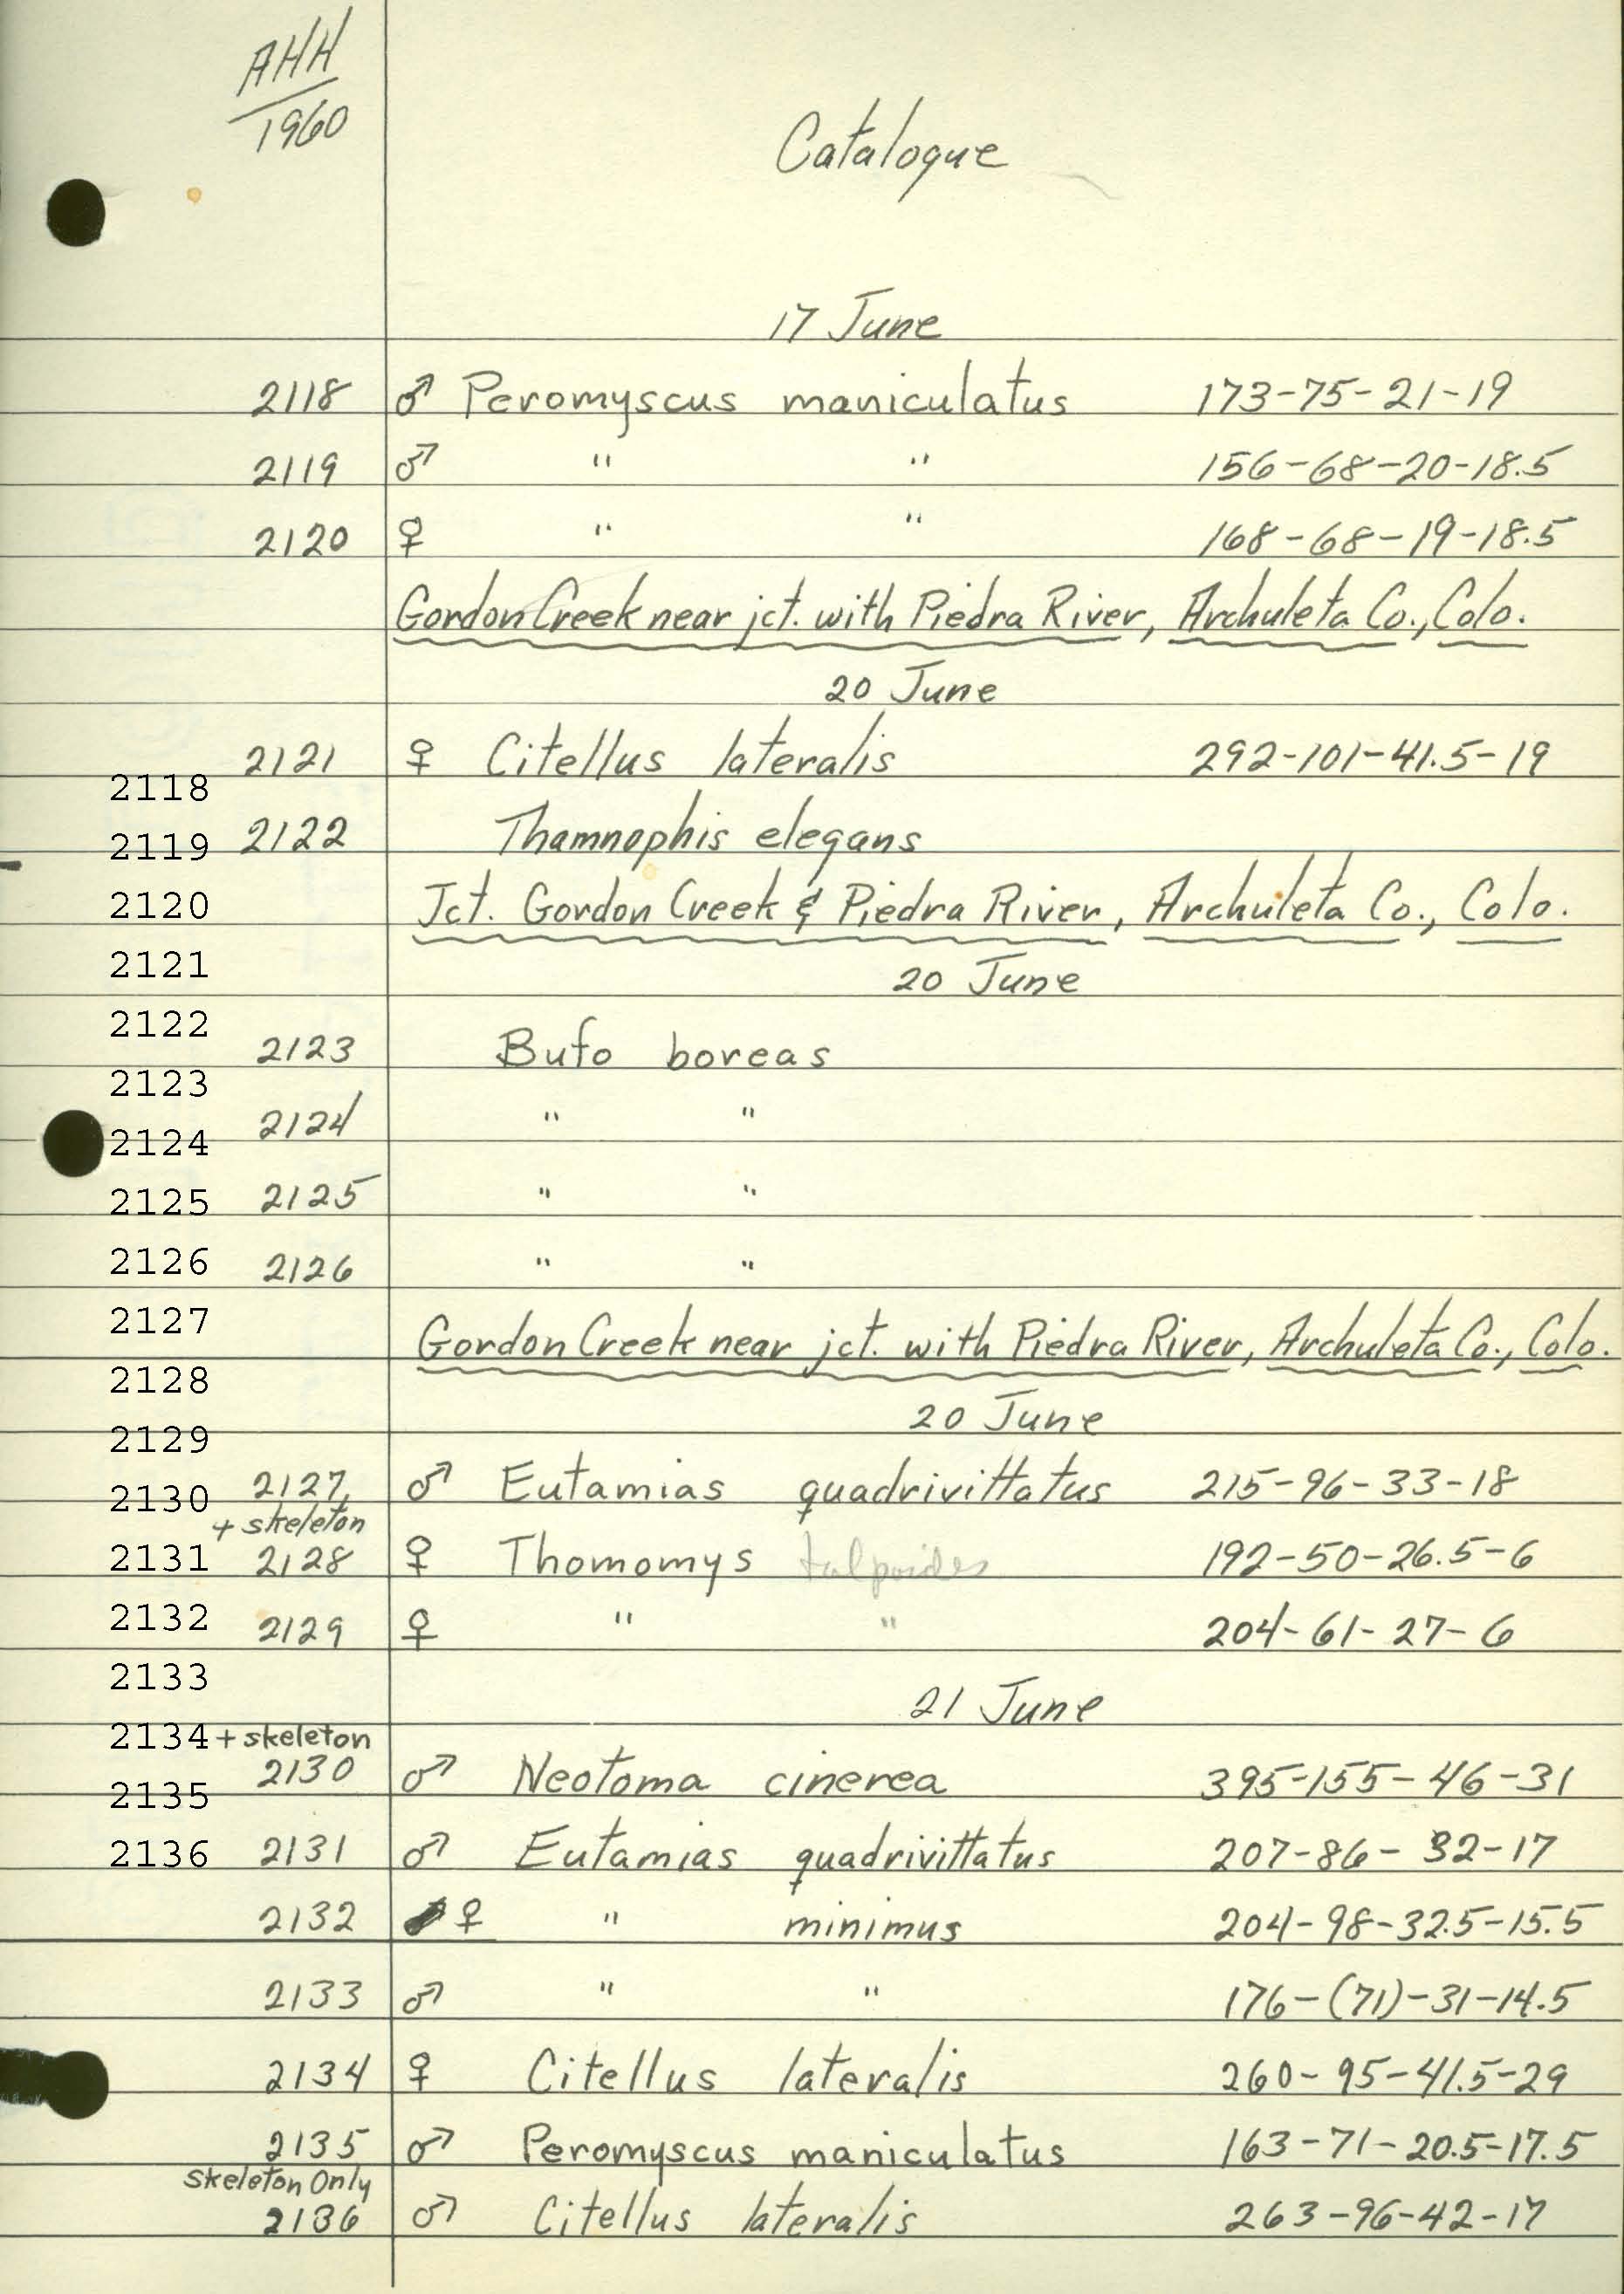 AHH
1960
Catalogue
17 June
2118 ♂ Peromyscus maniculatus 173-75-21-19
2119 ♂ " " 156-68-20-18.5
2120 ♀ " " 168-68-19-18.5
Gordon Creek near jct. with Piedra River, Archuleta Co., Colo.
20 June
2121 ♀ Citellus lateralis 292-101-41.5-19
2118
2119 2122 Thamnophis elegans
2120 Jct. Gordon Creek & Piedra River, Archuleta Co., Colo.
2121 20 June
2122
2123 Bufo boreas
2123
2124 " "
2124
2125 2125 " "
2126 2126 " "
2127 Gordon Creek near jct. with Piedra River, Archuleta Co., Colo.
2128
20 June
2129
2130 2127 ♂ Eutamias quadrivittatus 215-96-33-18
+ skeleton
2131 2128 ♀ Thomomys talpoides 192-50-26.5-6
2132 2129 ♀ " " 204-61-27-6
2133
21 June
2134 + skeleton
2130 ♂ Neotoma cinerea 395-155-46-31
2135
2136 2131 ♂ Eutamias quadrivittatus 207-86-32-17
2132 ♀ " minimus 204-98-32.5-15.5
2133 ♂ " " 176-(71)-31-14.5
2134 ♀ Citellus lateralis 260-95-41.5-29
2135 ♂ Peromyscus maniculatus 163-71-20.5-17.5
Skeleton Only
2136 ♂ Citellus lateralis 263-96-42-17